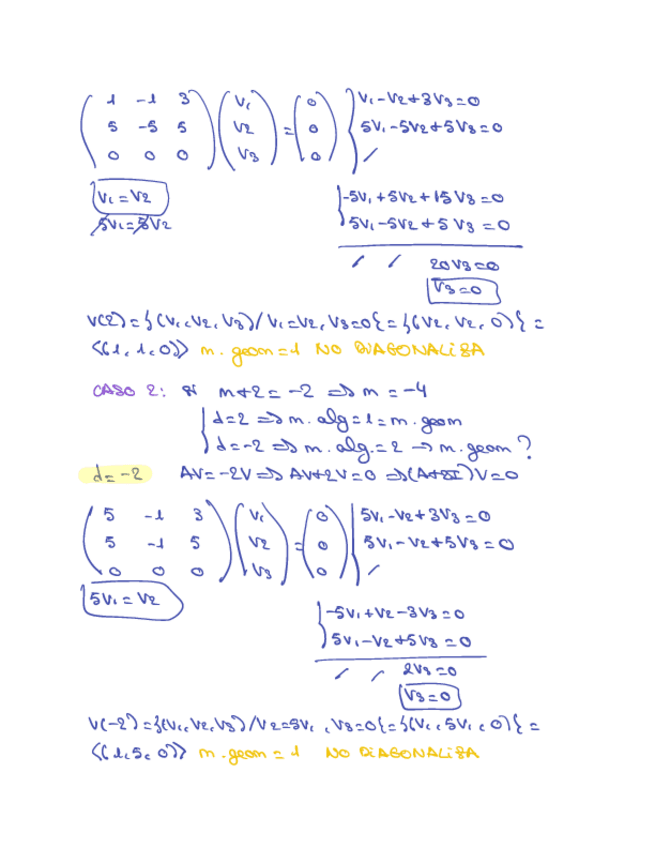 ( 1 -1 3 ) ( V₁ ) = ( 0 ) { V₁-V₂+3V₃=0
( 5 -5 5 ) ( V₂ ) = ( 0 ) { 5V₁-5V₂+5V₃=0
( 0 0 0 ) ( V₃ ) = ( 0 ) { /
V₁=V₂
5V₁=5V₂
{ -5V₁+5V₂+15V₃=0
{ 5V₁-5V₂+5V₃=0
/ / 20V₃=0
V₃=0
V(2)={(V₁,V₂,V₃)/V₁=V₂,V₃=0}={(V₂,V₂,0)}=
<(1,1,0)> m.geom=1 NO DIAGONALIZA
CASO 2: si m+2=-2 => m=-4
{ d=2 => m.alg=1=m.geom
{ d=-2 => m.alg.=2 → m.geom?
d=-2 AV=-2V => AV+2V=0 => (A+2I)V=0
( 5 -1 3 ) ( V₁ ) = ( 0 ) { 5V₁-V₂+3V₃=0
( 5 -1 5 ) ( V₂ ) = ( 0 ) { 5V₁-V₂+5V₃=0
( 0 0 0 ) ( V₃ ) = ( 0 ) { /
5V₁=V₂
{ -5V₁+V₂-3V₃=0
{ 5V₁-V₂+5V₃=0
/ / 2V₃=0
V₃=0
V(-2)={(V₁,V₂,V₃)/V₂=5V₁,V₃=0}={(V₁,5V₁,0)}=
<(1,5,0)> m.geom=1 NO DIAGONALIZA